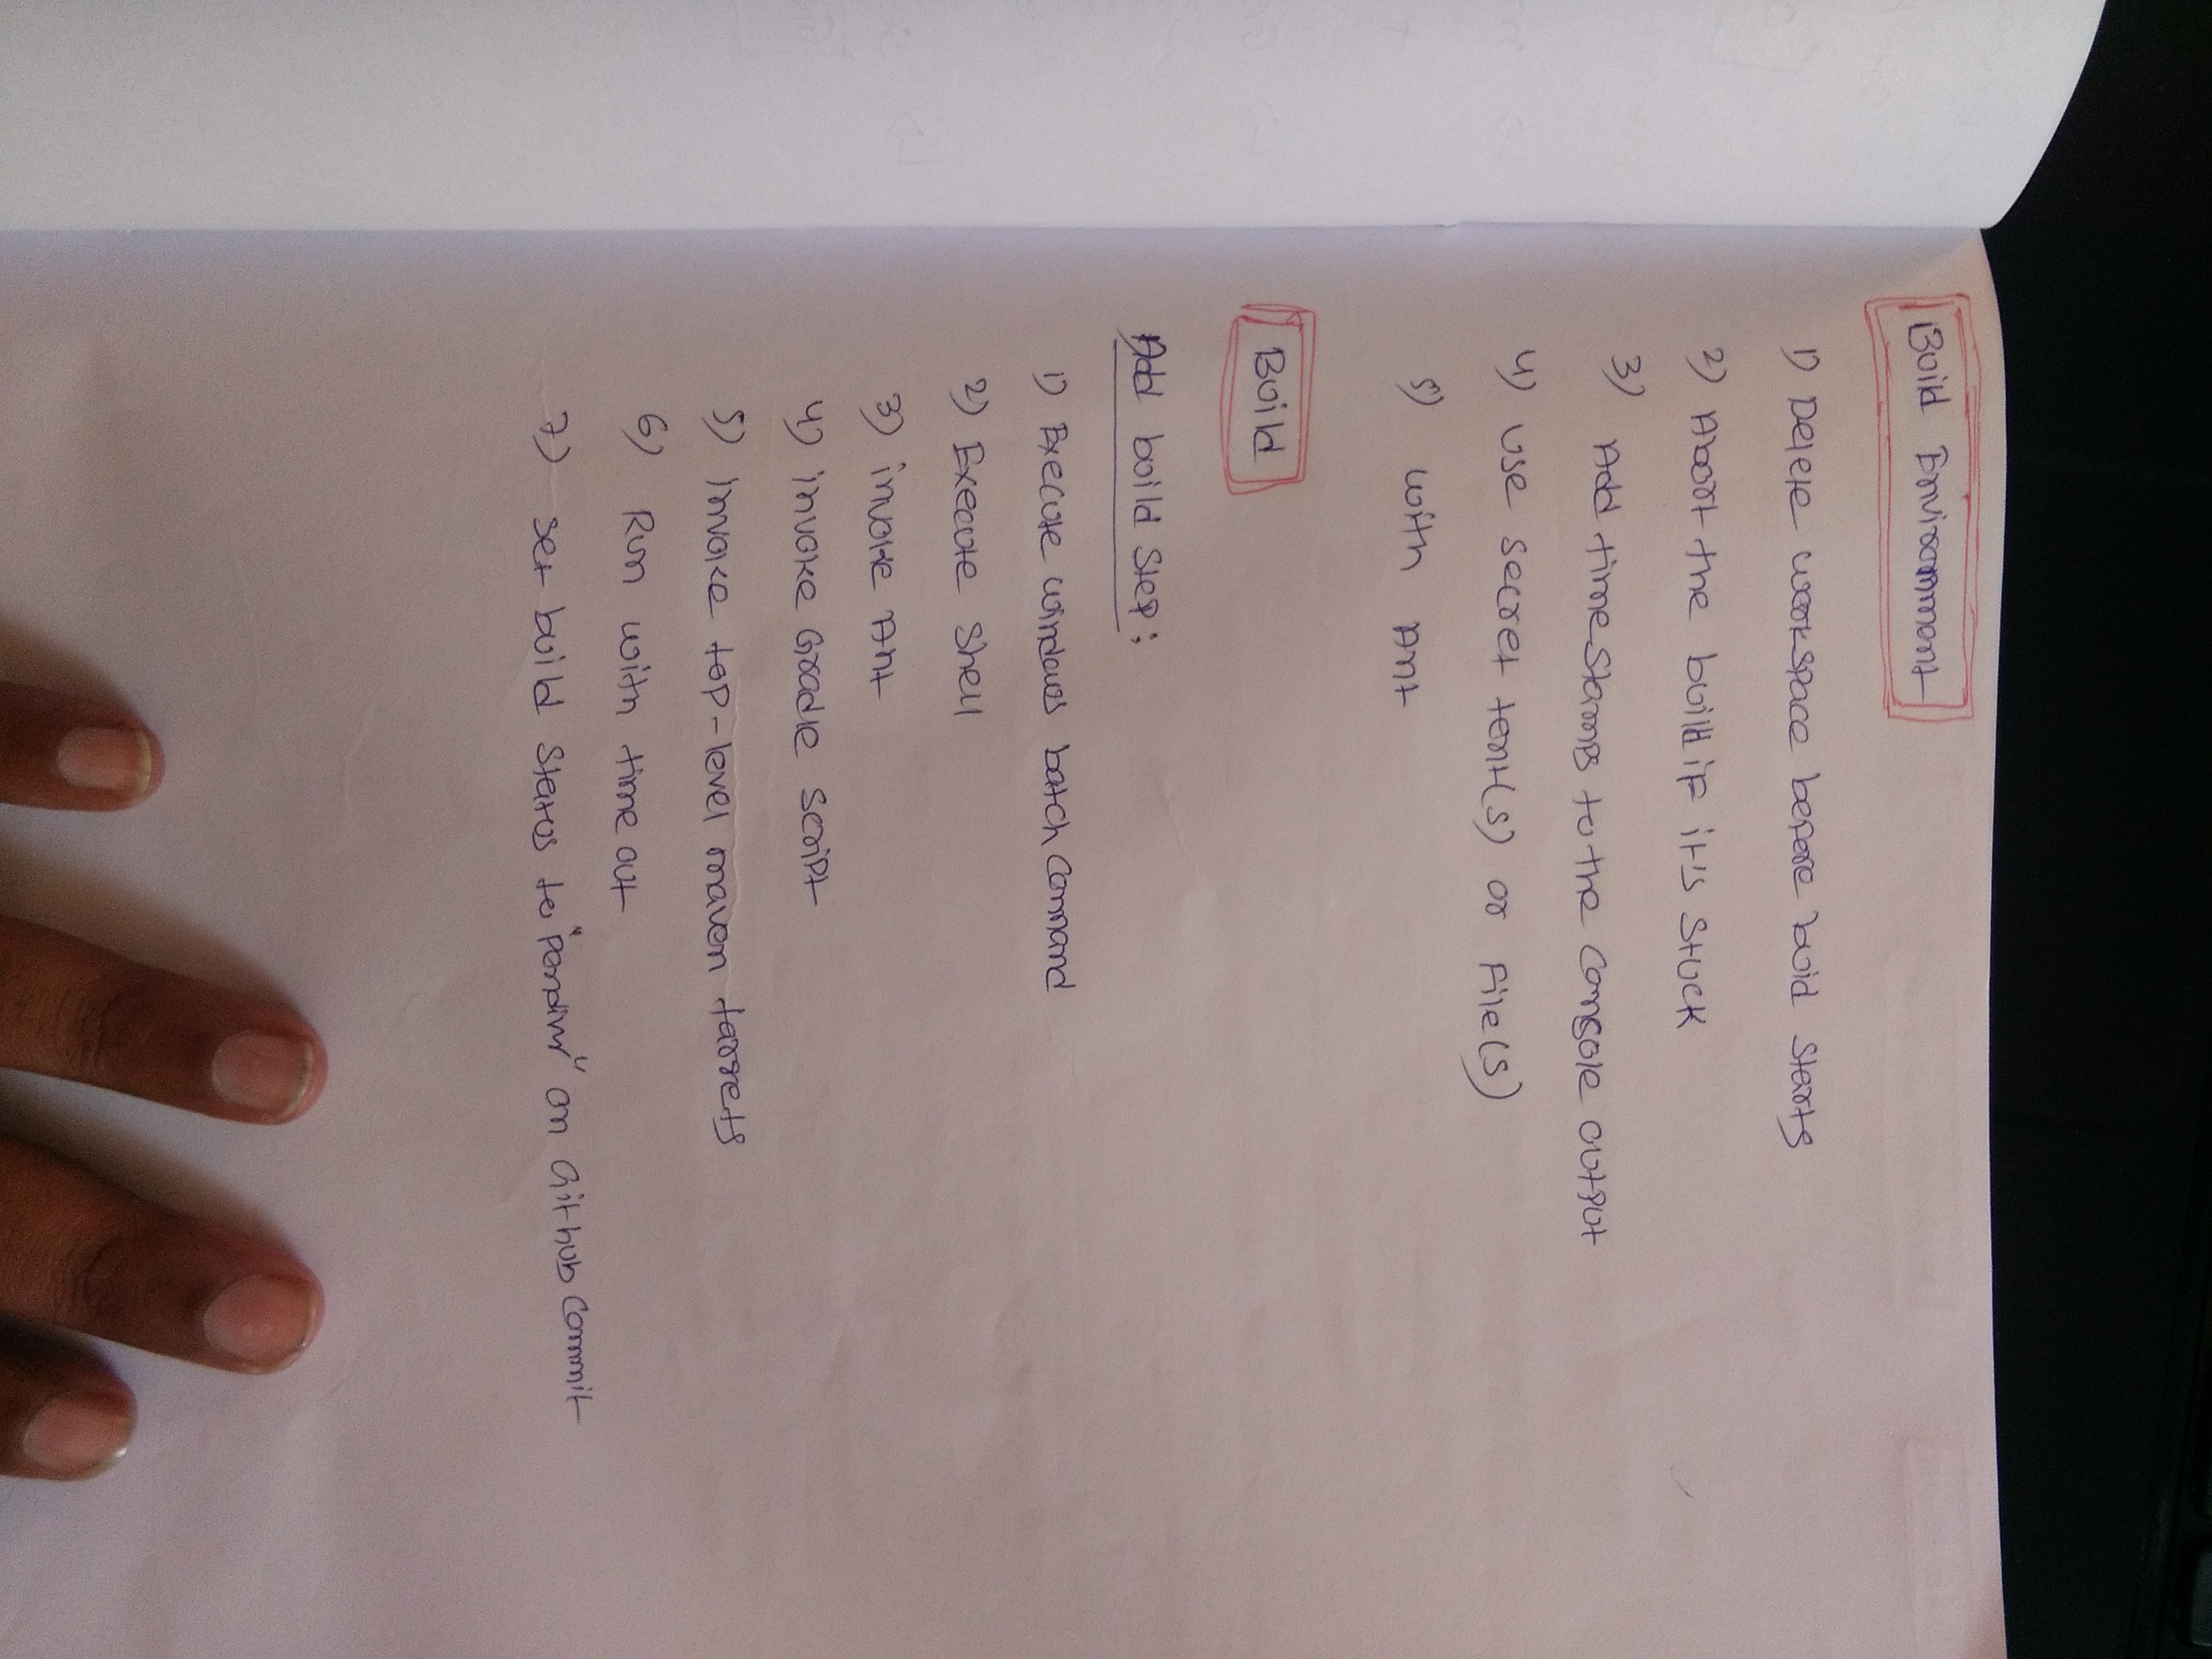 Build Environment
1) Delete workspace before buid starts
2) Abort the build if it's stuck
3) Add timestamps to the console output
4) use secret tent(s) or File(s)
5) with Ant
Build
Add build step:
1) Execute windows batch command
2) Execute shell
3) invoke Ant
4) invoke Gradle script
5) invoke top-level maven targets
6) Run with time out
7) set build status to "pending" on Github commit